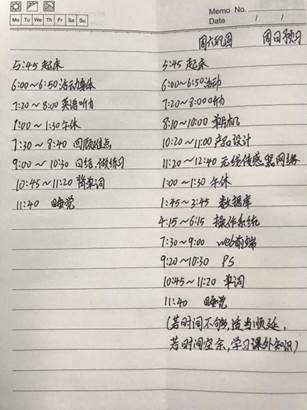 Memo No.
Mo Tu We Th Fr Sa Su
Date / /
周日预习
5:45 起床
6:00~6:50 活动身体
7:20~8:00 英语听力
1:00~1:30 午休
7:30~8:40 回顾难点
9:00~10:30 总结,做练习
10:45~11:20 背单词
11:40 睡觉
5:45 起床
6:00~6:50 活动
7:20~8:00 听力
8:10~10:00 单片机
10:20~11:00 产品设计
11:20~12:40 无线传感器网络
1:00~1:30 午休
1:45~3:45 数据库
4:15~6:15 操作系统
7:30~9:00 web前端
9:20~10:30 PS
10:45~11:20 单词
11:40 睡觉
(若时间不够,适当顺延,
若时间空余,学习课外知识)